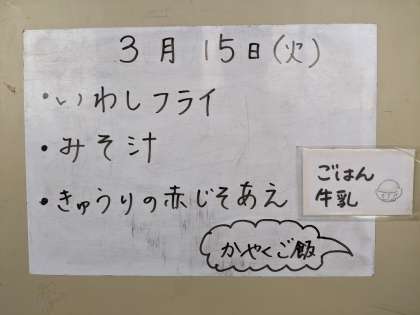 3月15日(火)
・いわしフライ
・みそ汁
・きゅうりの赤じそあえ
ごはん
牛乳
かやくご飯